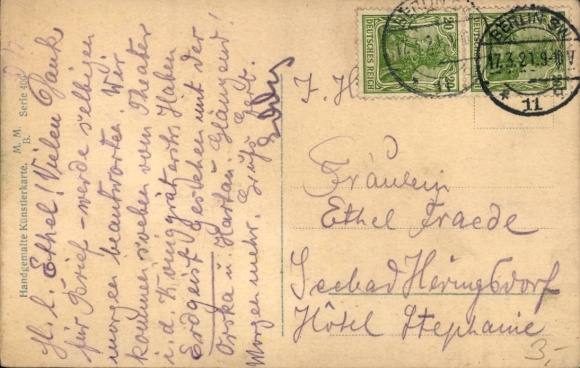 M. l. Ethel! Vielen Dank
für Brief – werde selbigen
morgen beantworten. Wir
kommen soeben vom Theater
i. d. Königgrätzerstr. Haben
Erdgeist gesehen mit der
Orska u. Hartau. Glänzend!
Morgen mehr.
Handgemalte Künstlerkarte. M. M. Serie 400
B.
20 20
DEUTSCHES REICH
BERLIN SW
17.3.21.9-10V
11
Fräulein
Ethel Fraede
Seebad Heringsdorf
Hôtel Stephanie
3,-